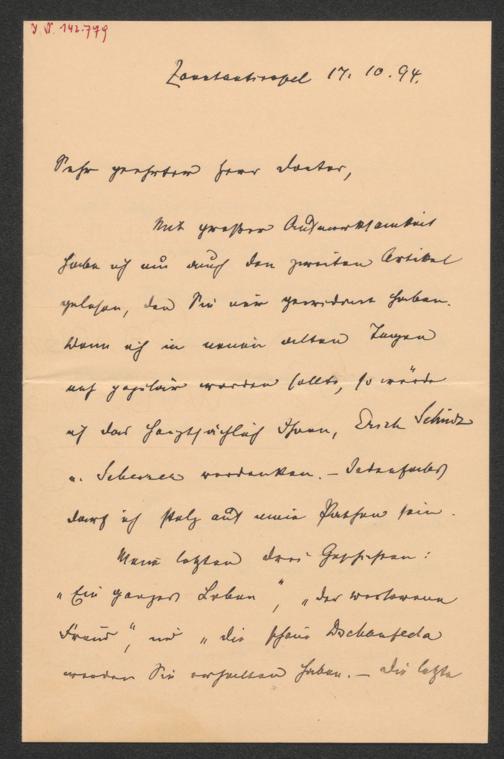 I. N. 142.779
Konstantinopel 17. 10. 94.
Sehr geehrter Herr Doctor,
Mit großer Aufmerksamkeit
habe ich nun auch den zweiten Artikel
gelesen, den Sie mir gewidmet haben.
Wenn ich in meinen alten Tagen
noch populär werden sollte, so würde
ich das hauptsächlich Ihnen, Erich
u. Scherer verdanken. – Jedenfalls
darf ich stolz auf meine Pathen sein.
Meine letzten drei Geschichten:
„Ein ganzes Leben", „der verlorene
Freund", und „die schöne Dschanfeda
werden Sie erhalten haben. – Die letzte